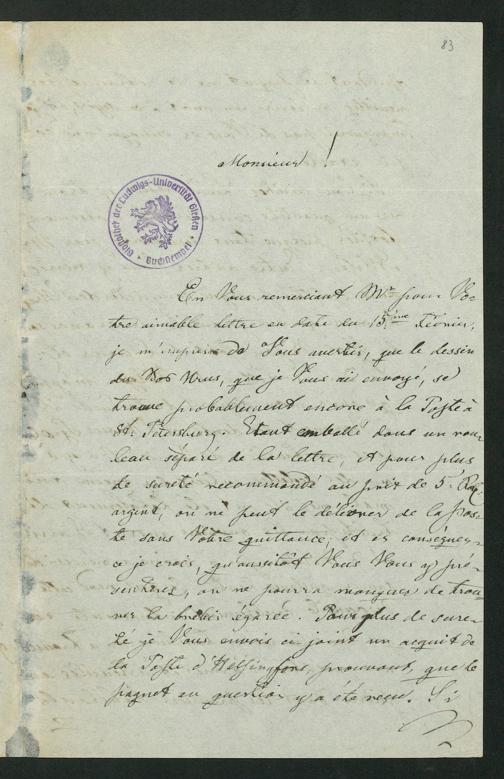 83
Monsieur !
Bibliothek der Ludwigs-Universität Gießen
Buchstempel
En Vous remerciant Mr pour Vo-
tre aimable lettre en date du 15ème Février,
je m'empresse de Vous avertir, que le dessin
du Bos Urus, que je Vous ai envoyé, se
trouve probablement encore à la Poste à
St. Petersburg. Etant emballé dans un rou-
leau séparé de la lettre, et pour plus
de sureté recommandé au prix de 5 Rbl
argent, on ne peut le délivrer de la Pos-
te sans Votre quittance, et en conséquen-
ce je crois, qu'aussitôt Vous Vous y pré-
senterez, on ne pourra manquer de trou-
ver la brebis égarée. Pour plus de sure-
té je Vous envois ci joint un acquit de
la Poste d'Helsingfors, prouvant, que le
paquet en question y a été reçu. Si